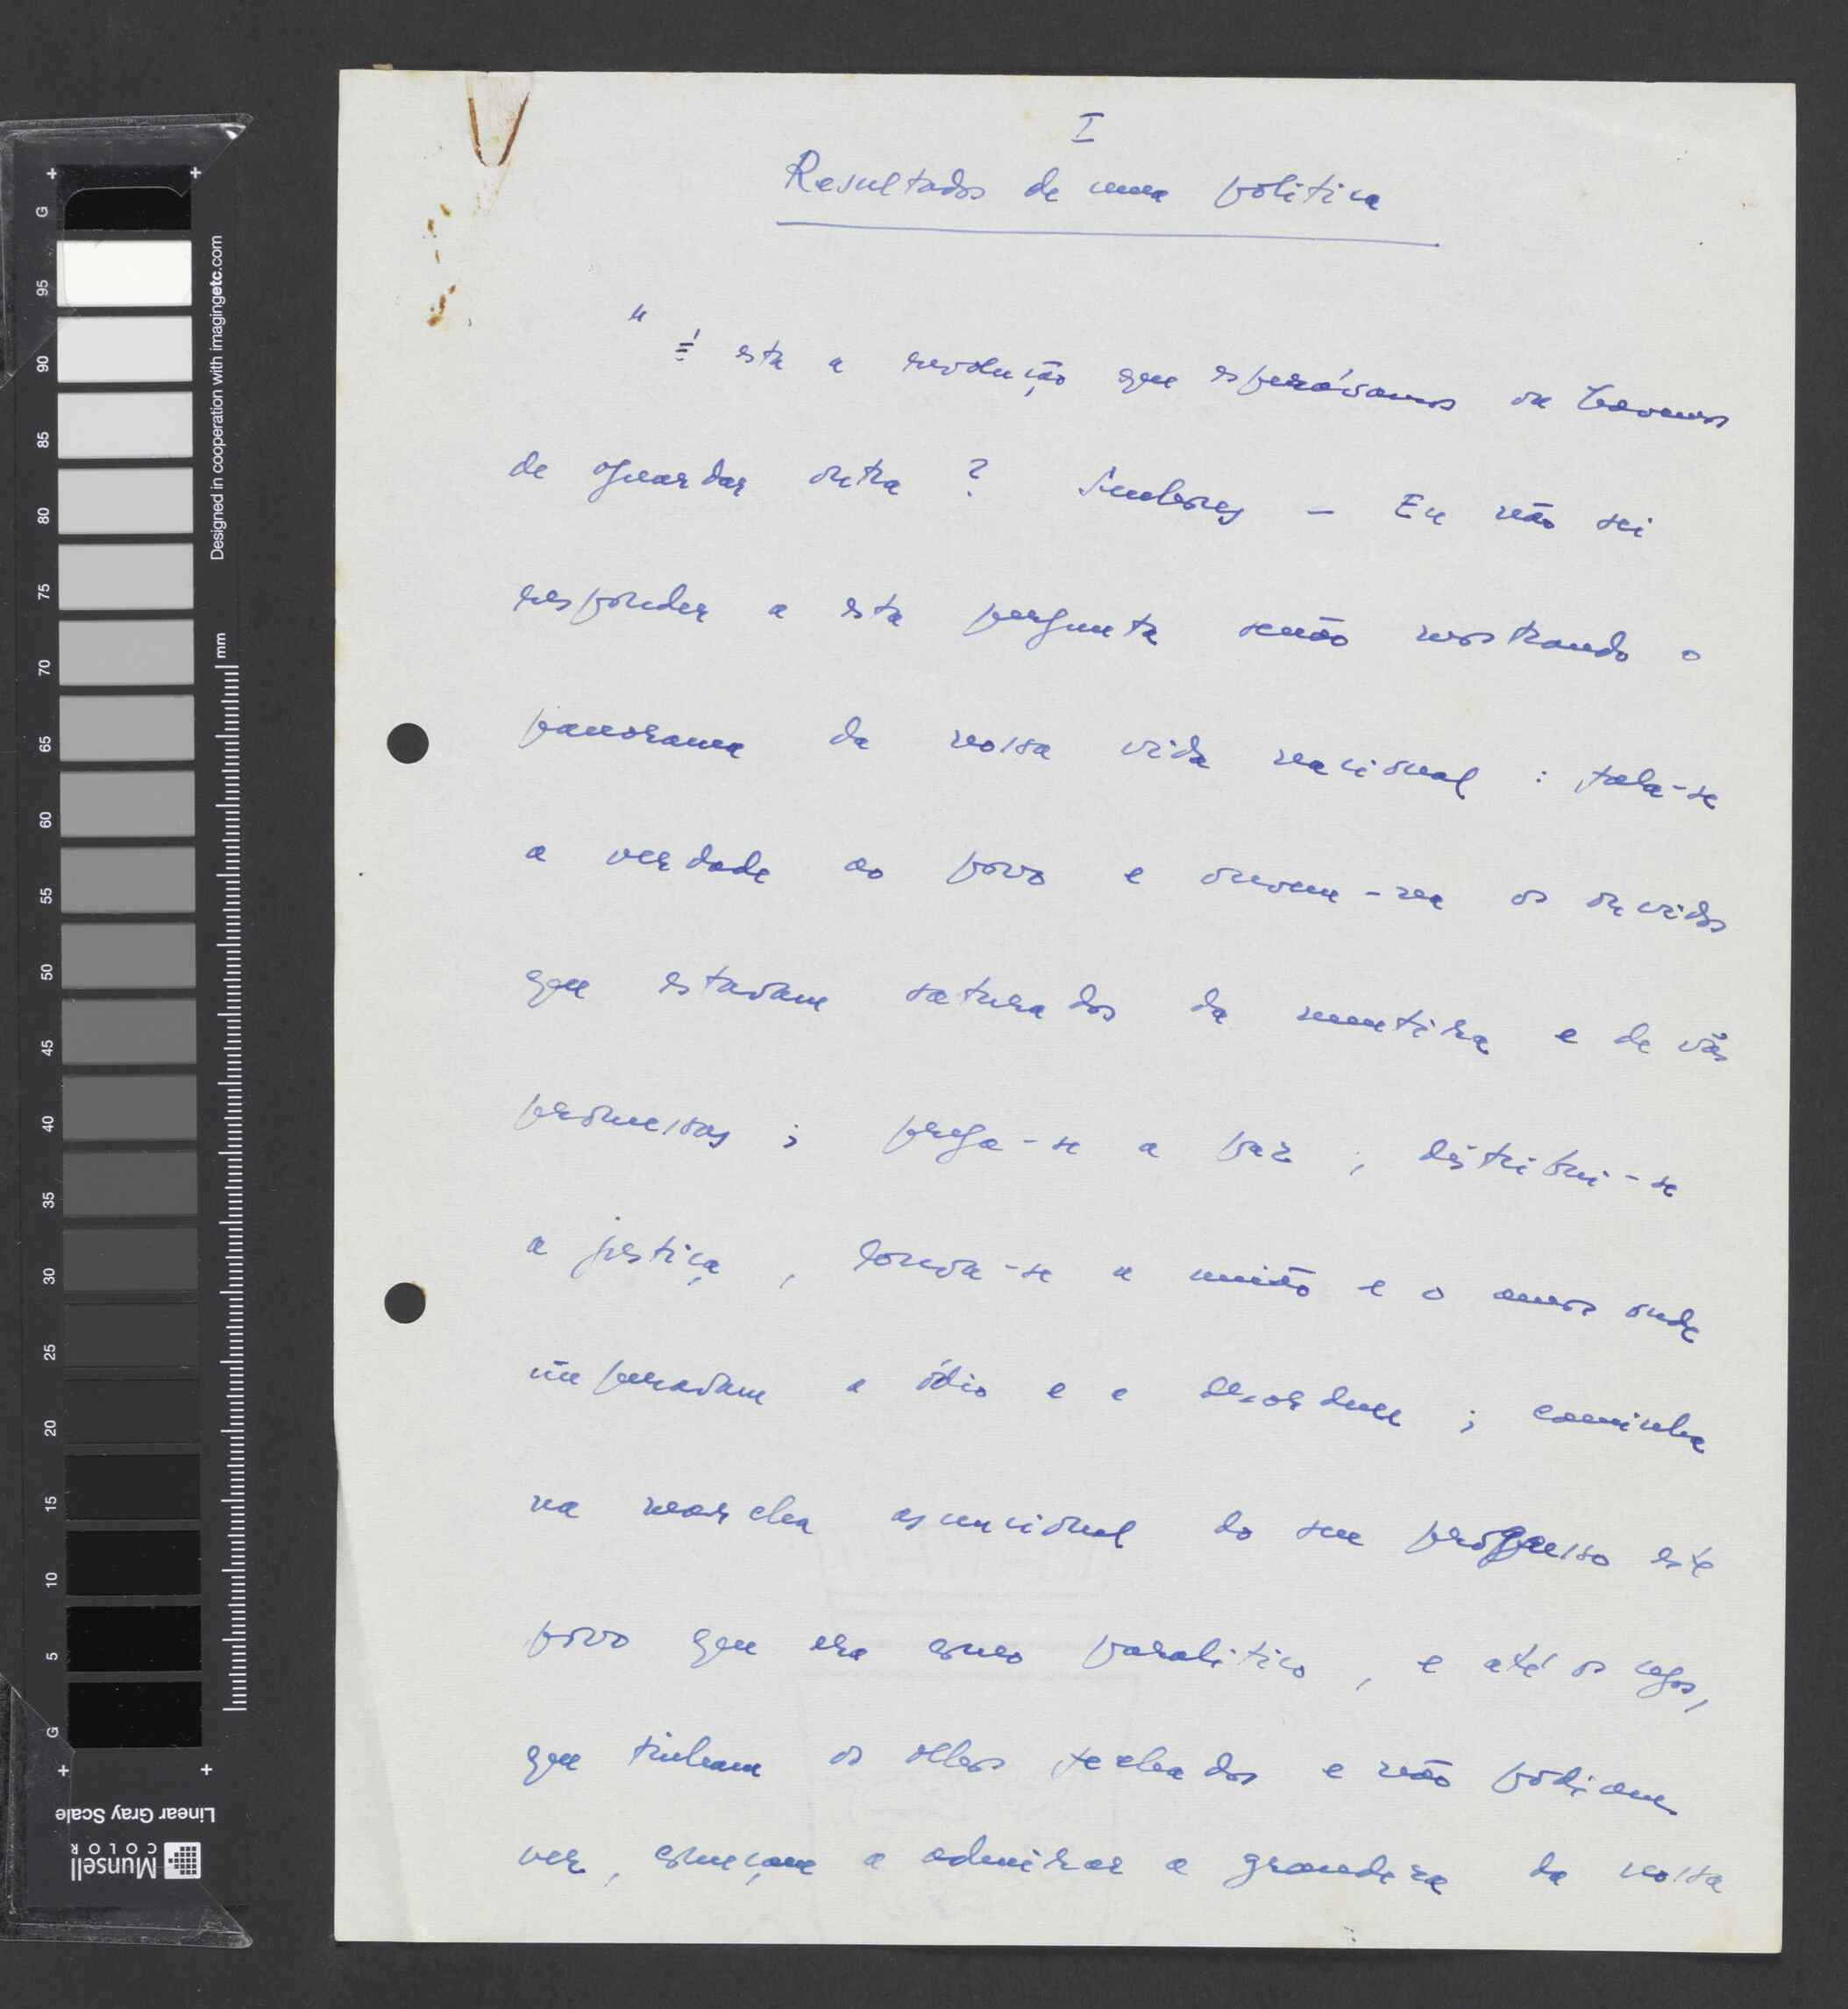 I
Resultados de uma politica
" É esta a revolução que esperávamos ou havemos
de aguardar outra ? Senhores - Eu não sei
responder a esta pergunta senão mostrando o
panorama da nossa vida nacional : fala-se
a verdade ao povo e ouvem-na os ouvidos
que estavam saturados da mentira e de vãs
promessas ; prega-se a paz , distribui-se
a justiça , louva-se a união e o amor onde
imperavam o ódio e a desordem ; caminha
na marcha ascencional do seu progresso este
povo que era como paralitico , e até os cegos,
que tinham os olhos fechados e não podiam
ver, começam a admirar a grandeza da nossa
G 95 90 85 80 75 70 65 60 55 50 45 40 35 30 25 20 15 10 5 G
Designed in cooperation with imagingetc.com
mm
Linear Gray Scale
Munsell
COLOR